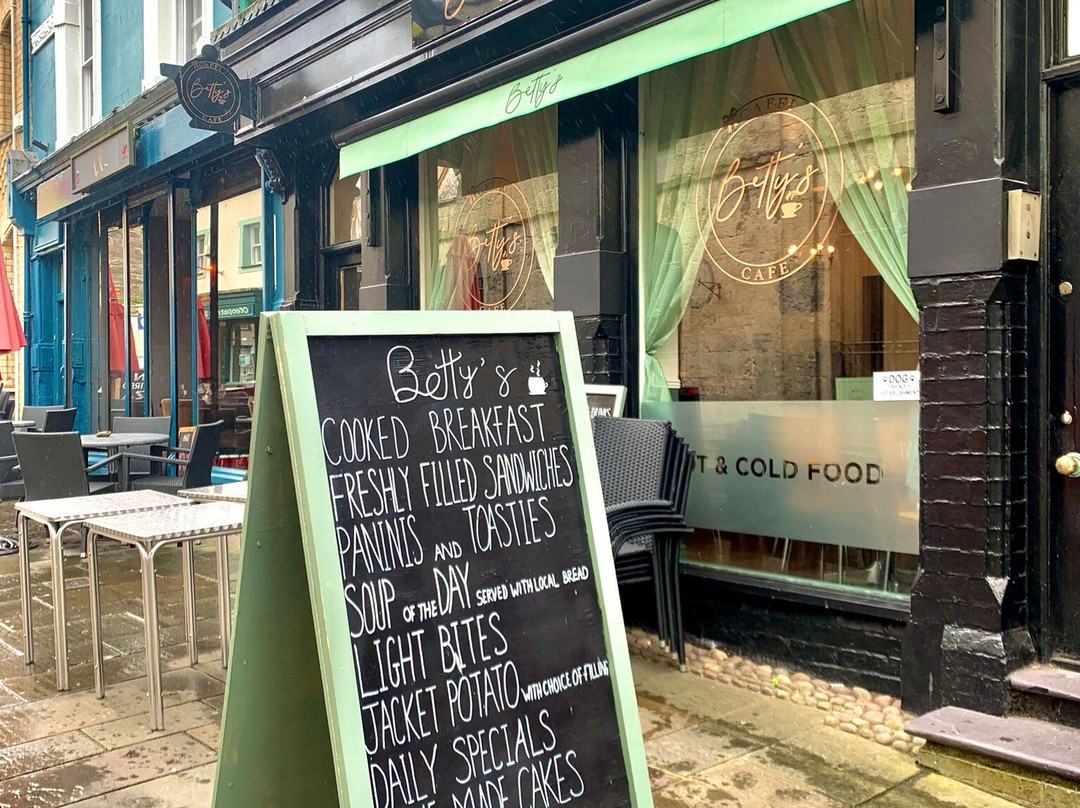 Betty's
CAFE
Betty's
CAFFI
Betty's
CAFE
Betty's
CAFE
DOG
& COLD FOOD
Betty's
COOKED BREAKFAST
FRESHLY FILLED SANDWICHES
PANINIS AND TOASTIES
SOUP OF THE DAY SERVED WITH LOCAL BREAD
LIGHT BITES
JACKET POTATO WITH CHOICE OF FILLING
DAILY SPECIALS
MADE CAKES